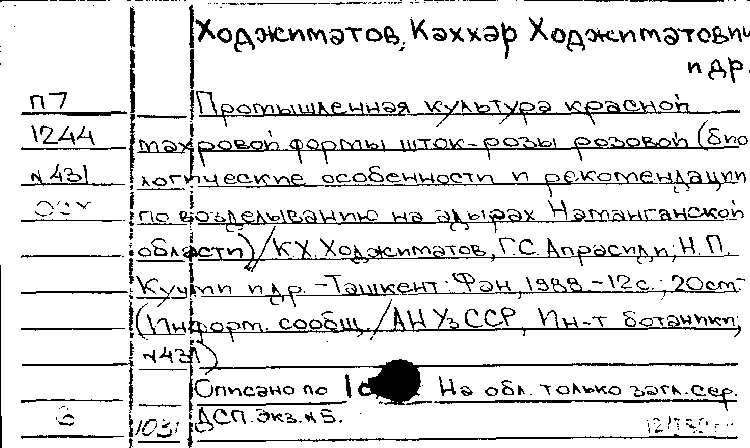 Ходжиматов, Каххар Ходжиматович
и др.
П7
Промышленная культура красной
1244
махровой формы шток-розы розовой (био
№431
логические особенности и рекомендации
по возделыванию на адырах Наманганской
области) / К.Х. Ходжиматов, Г.С. Апрасиди, Н.П.
Кучми и др. – Ташкент: Фан, 1989. – 12с.; 20см –
(Информ. сообщ. / АН УзССР, Ин-т ботаники;
№431)
Описано по 1 На обл. только загл. сер.
3 1031 ДСП. Экз. №5.